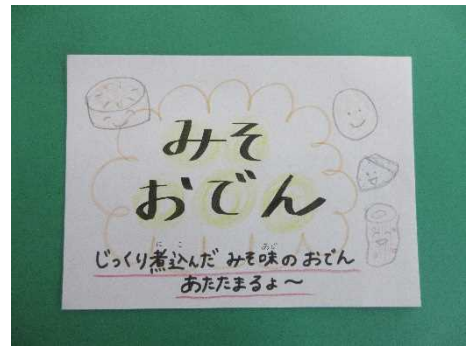 みそ
おでん
じっくり煮込んだ みそ味の おでん
あたたまるよ〜